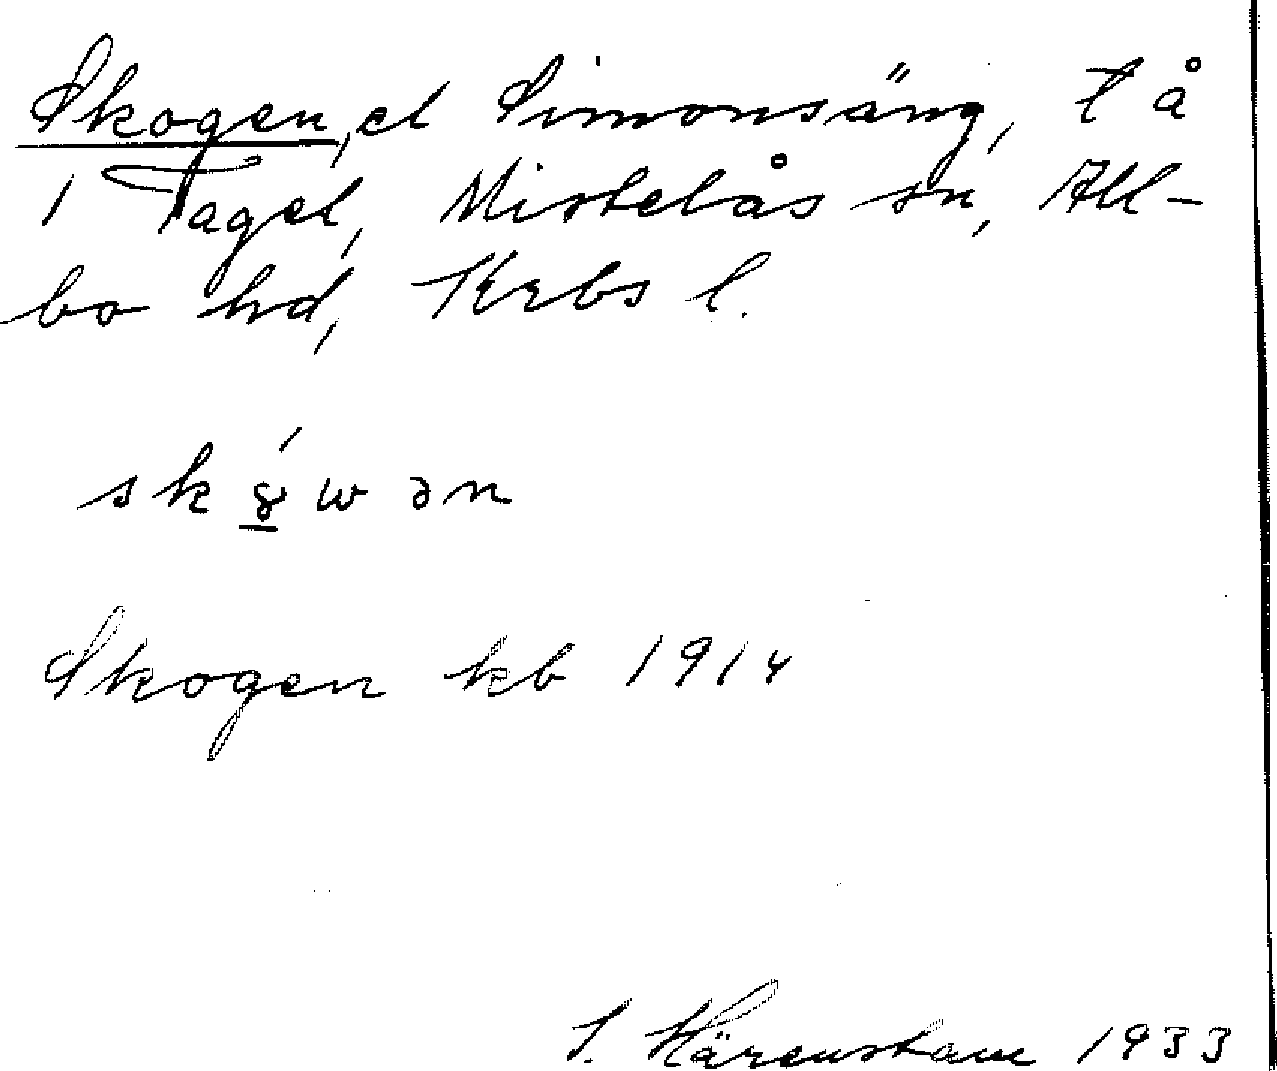 Skogen, el Simonsäng, t å
1 Tagel, Mistelås sn, All-
bo hd, Krbs l.
sk ȣ́ w ə n
Skogen kb 1914
S. Härenstam 1933